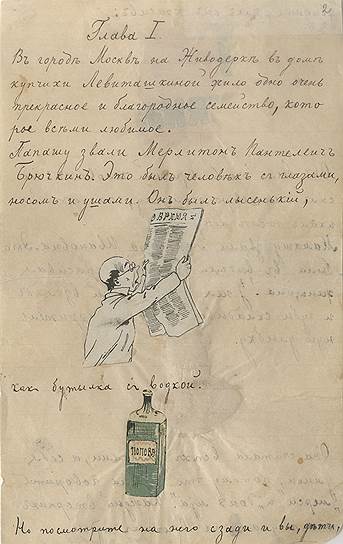 2
Глава I.
Въ городѣ Москвѣ на Живодеркѣ въ домѣ
купчихи Левиташкиной жило одно очень
прекрасное и благородное семейство, кото
рое всѣми любимое.
Папашу звали Мерлитонъ Пантелеичъ
Брючкинъ. Это былъ человѣкъ съ глазами,
носомъ и ушами. Онъ былъ лысенькій,
ВРЕМЯ
какъ бутылка съ водкой.
ПОПОВА
Но посмотрите на него сзади и вы, дѣти,